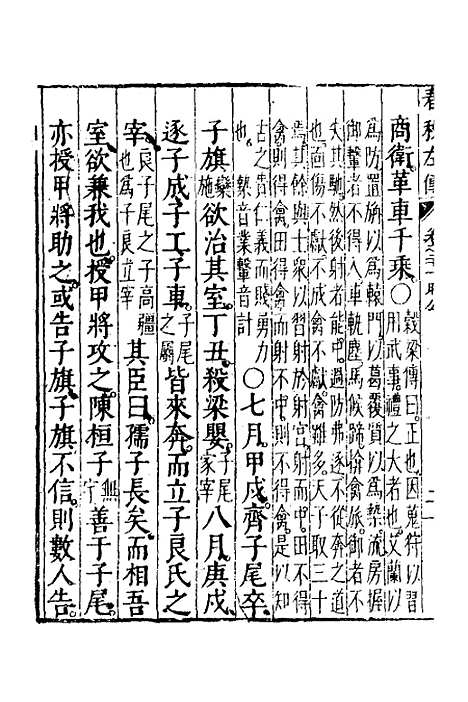 春秋左傳
商衛革車千乘。〇穀梁傳曰正也因蒐狩以習
用武事禮之大者也艾蘭以
為防置旃以為轅門以葛覆質以為槷流房握
御轚者不得入車軌塵馬候蹄揜禽旅御者不
失其馳然後射者能中過防弗逐不從奔之道
也面傷不獻不成禽不獻禽雖多天子取三十
焉其餘與士衆以習射於射宮射而中田不得
禽則得禽田得禽而射不中則不得禽是以知
古之貴仁義而賤勇力
也 槷音業轚音計 〇七月甲戌。齊子尾卒。
子旗欒施欲治其室。丁丑。殺梁嬰。子尾家宰八月。庚戌。
逐子成子工子車。子尾之屬皆來奔。而立子良氏之
宰。良子尾之子高彊也為子良立宰其臣曰。孺子長矣。而相吾
室。欲兼我也。授甲將攻之。陳桓子無宇善于子尾。
亦授甲將助之。或告子旗。子旗不信。則數人告。